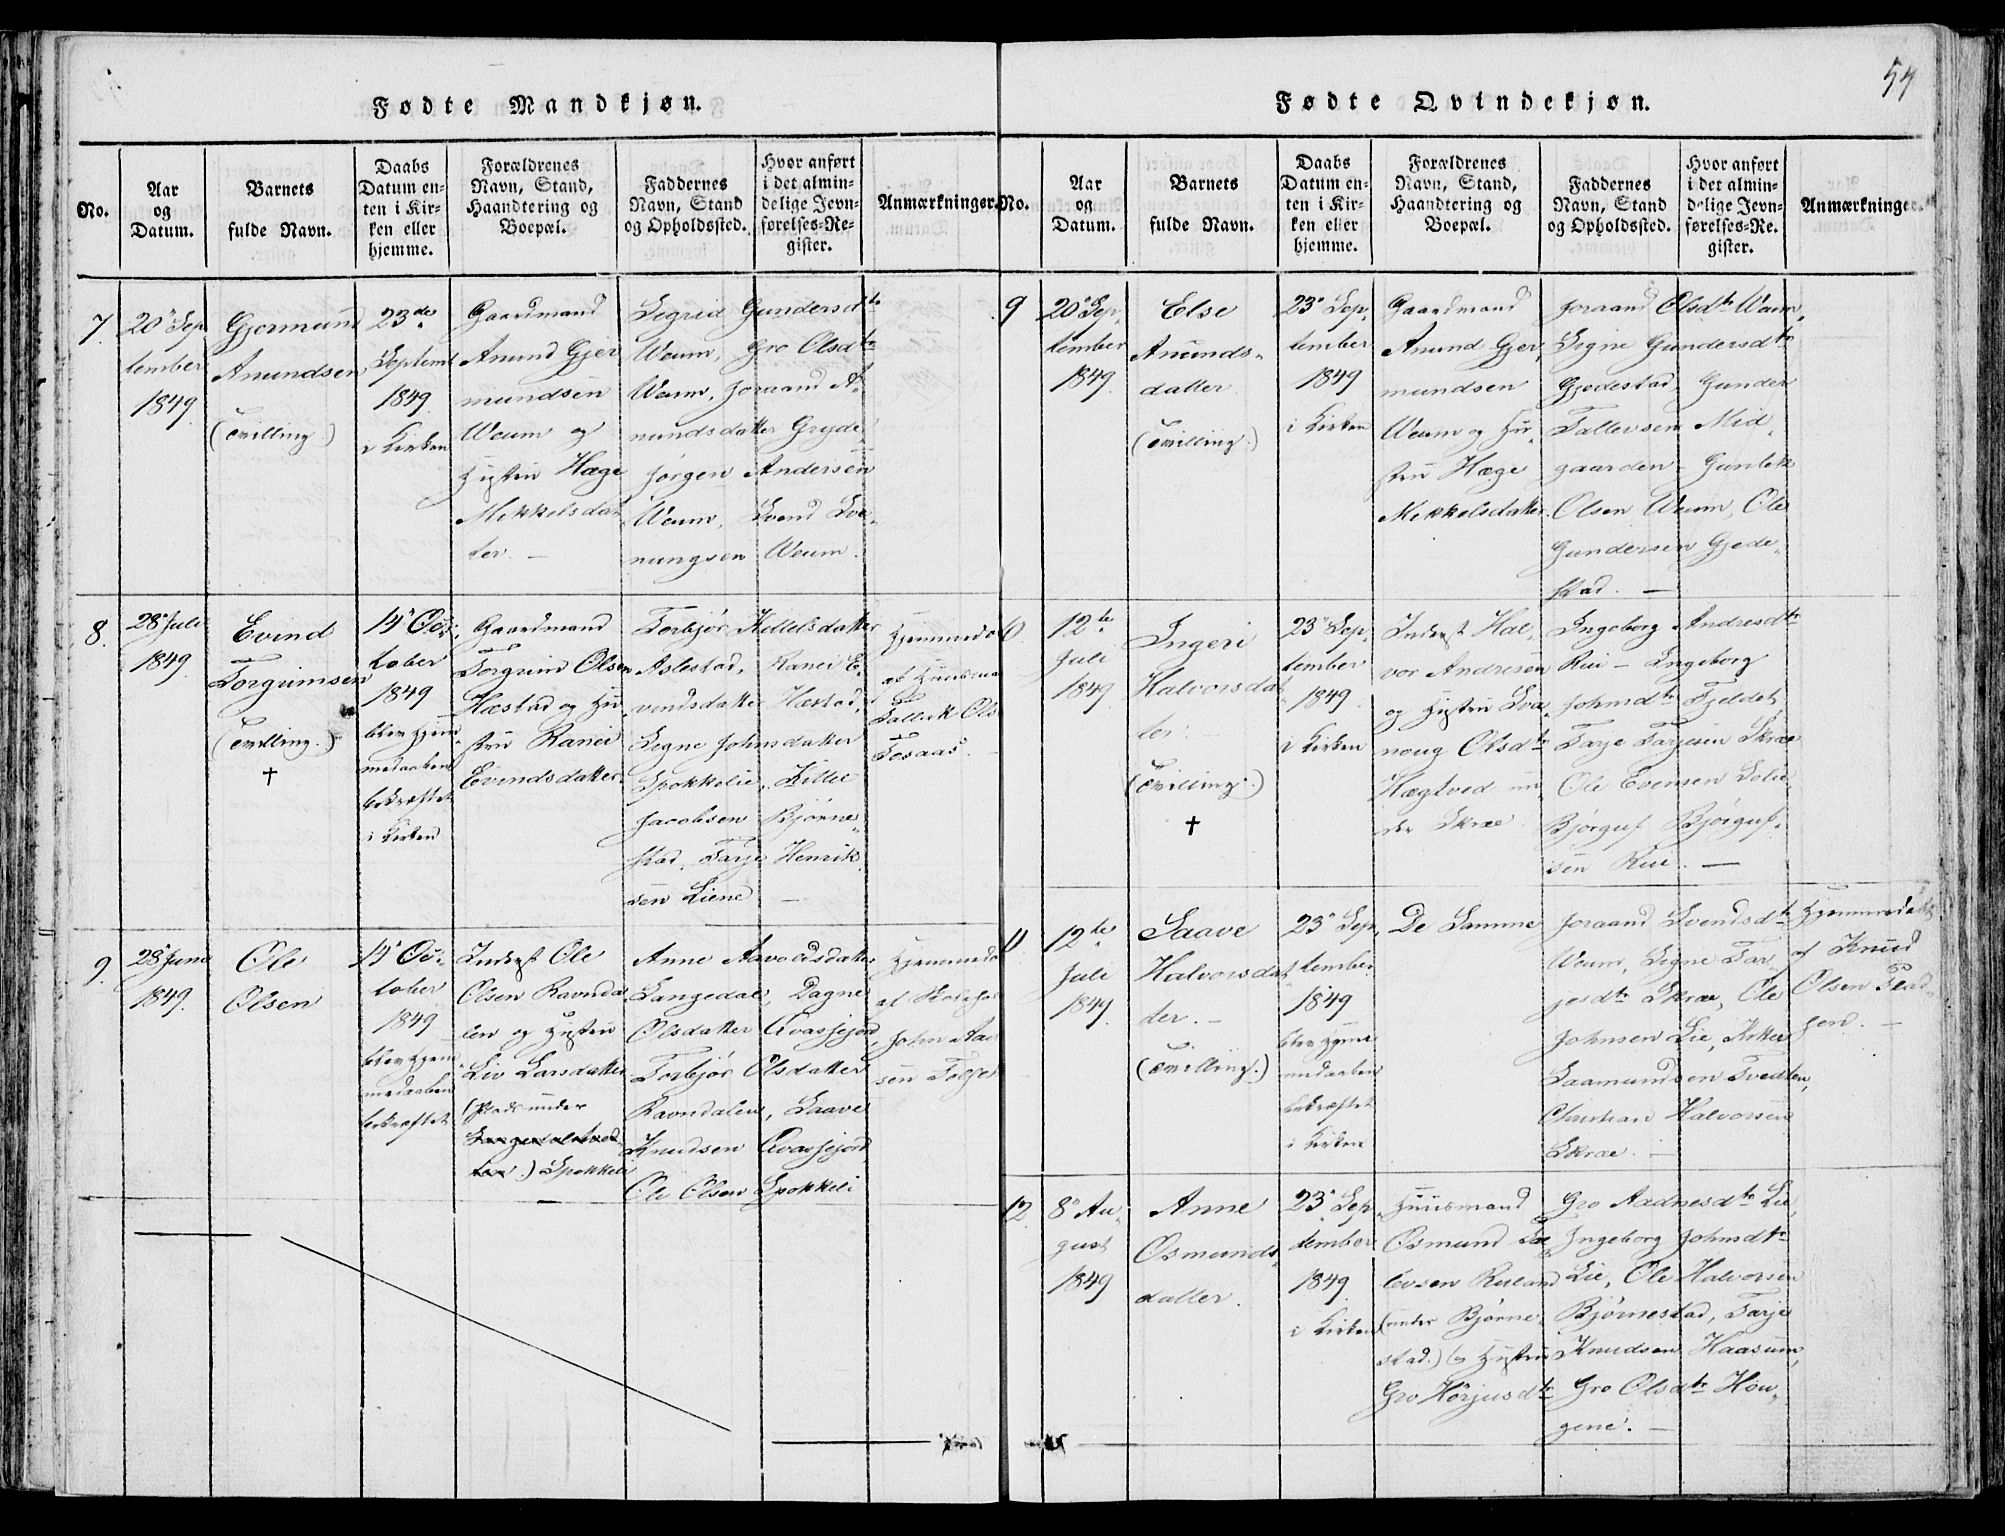 54
Fødte Mandkjøn.
No.
Aar
og
Datum.
Barnets
fulde Navn.
Daabs
Datum en-
ten i Kir-
ken eller
hjemme.
Forældrenes
Navn, Stand,
Haandtering og
Boepæl.
Faddernes
Navn, Stand
og Opholdssted.
Hvor anført
i det almin-
delige Jevn-
førelses-Re-
gister.
Anmærkninger.
7.
20de Sep
tember
1849
Gjermund
Anundsen
(Tvilling)
23de
Septemb
1849
i Kirken
Gaardmand
Anund Gjer
mundsen
Weum og
Hustru Hæge
Mikkelsdat
ter. —
Sigrid Gundersdtr
Weum, Gro Olsdtr
Weum, Joraand A-
nundsdatter Gryde,
Jørgen Andersen
Weum, Svend Sve-
nungsen Weum.
8.
28 Juli
1849
Evind
Torgrimsen
(Tvilling.)
†
14 Oc-
tober
1849
blev hjem-
medaaben
bekræftet
i Kirken
Gaardmand
Torgrim Olsen
Hæstad og Hu
stru Ranei
Evindsdatter
Torbjør Kittelsdatter
Aslestad, Ranei E-
vindsdatter Hæstad,
Signe Johnsdatter
Spokkelie, Kittel
Jacobsen Bjørne-
stad, Tarje Henrik
sen Liene —
Hjemmedøbt
af Huusma
Tallak Ols
Tosaas
9.
28 Juni
1849
Ole
Olsen
14 Oc-
tober
1849
blev hjem
medaaben
bekræftet
Inderst Ole
Olsen Ravnda
len og Hustru
Liv Larsdatter
(Plads under
Spokkeli
—
Anne Aavoldsdatter
Langedal, Dagne
Olsdatter Qvasfjord
Torbjør Olsdatter
Ravndalen, Saave
Knudsen Qvasfjord
Ole Olsen Spokkeli
Hjemmedø
af
John Aa
sen
Fødte Qvindekjøn.
No.
Aar
og
Datum.
Barnets
fulde Navn.
Daabs
Datum en-
ten i Kir-
ken eller
hjemme.
Forældrenes
Navn, Stand,
Haandtering og
Boepæl.
Faddernes
Navn, Stand
og Opholdssted.
Hvor anført
i det almin-
delige Jevn-
førelses-Re-
gister.
Anmærkninger.
9
20 Sep-
tember
1849
Else
Anunds-
datter
(Tvilling.)
23 Sep-
tember
1849
i Kirken
Gaardmand
Anund Gjer
mundsen
Weum og Hu-
stru Hæge
Mikkelsdatter.
Joraand Olsdtr Weum,
Signe Gundersdtr
Gjedestad, Gunder
Tallevsen Mid-
gaarden — Gunlek
Olsen Weum, Ole
Gundersen Gjede-
stad. —
12te
Juli
1849
Ingeri
Halvorsdat
ter.
(Tvilling.)
†
23 Sep-
tember
1849
i Kirken
Inderst Hal-
vor Andresen
og Hustru Sve-
noug Olsdtr
Hægtved un-
der Skræ
Ingeborg Andresdtr
Rui — Ingeborg
Johnsdtr Fjeldet,
Tarje Tarjesen Skræ
Ole Evensen Solie,
Bjørguf Bjørguf-
sen Rui. —
12te
Juli
1849
Saave
Halvorsdat
ter. —
(Tvilling.)
23 Sep
tember
1849
blev hjem
medaaben
bekræftet
i Kirken
De Samme
Joraand Svendsdtr
Weum, Signe Tar
jesdtr Skræ, Ole
Johnsen Lie,
Saamundsen Tvedten,
Christian Halvorsen
Skræ. —
Hjemmedøbt
af Knud
Olsen
—
12.
8 Au-
gust
1849
Anne
Osmunds-
datter.
23 Sep
tember
1849
i Kirken
Huusmand
Osmund Ta
levsen Ruland
(under Bjørne-
stad.) og Hustru
Gro Herjusdtr
Gro Aadnesdtr Lie,
Ingeborg Johnsdtr
Lie, Ole Halvorsen
Bjørnestad, Tarje
Knudsen Haasum,
Gro Olsdtr Hou-
gene. —